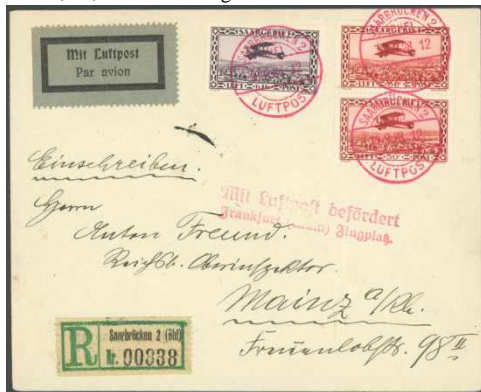 Mit Luftpost
Par avion
SAARGEBIET
SAARBRÜCKEN 2
12
LUFTPOST
SAARBRÜCKEN 2
LUFTPOST
Einschreiben.
Mit Luftpost befördert
Frankfurt (Main) Flugplatz.
Herrn
Anton Freund.
Reichsb. Oberinspektor.
Mainz a/Rh.
Frauenlobstr. 98 II
R
Saarbrücken 2 (Bhf)
Nr. 00338